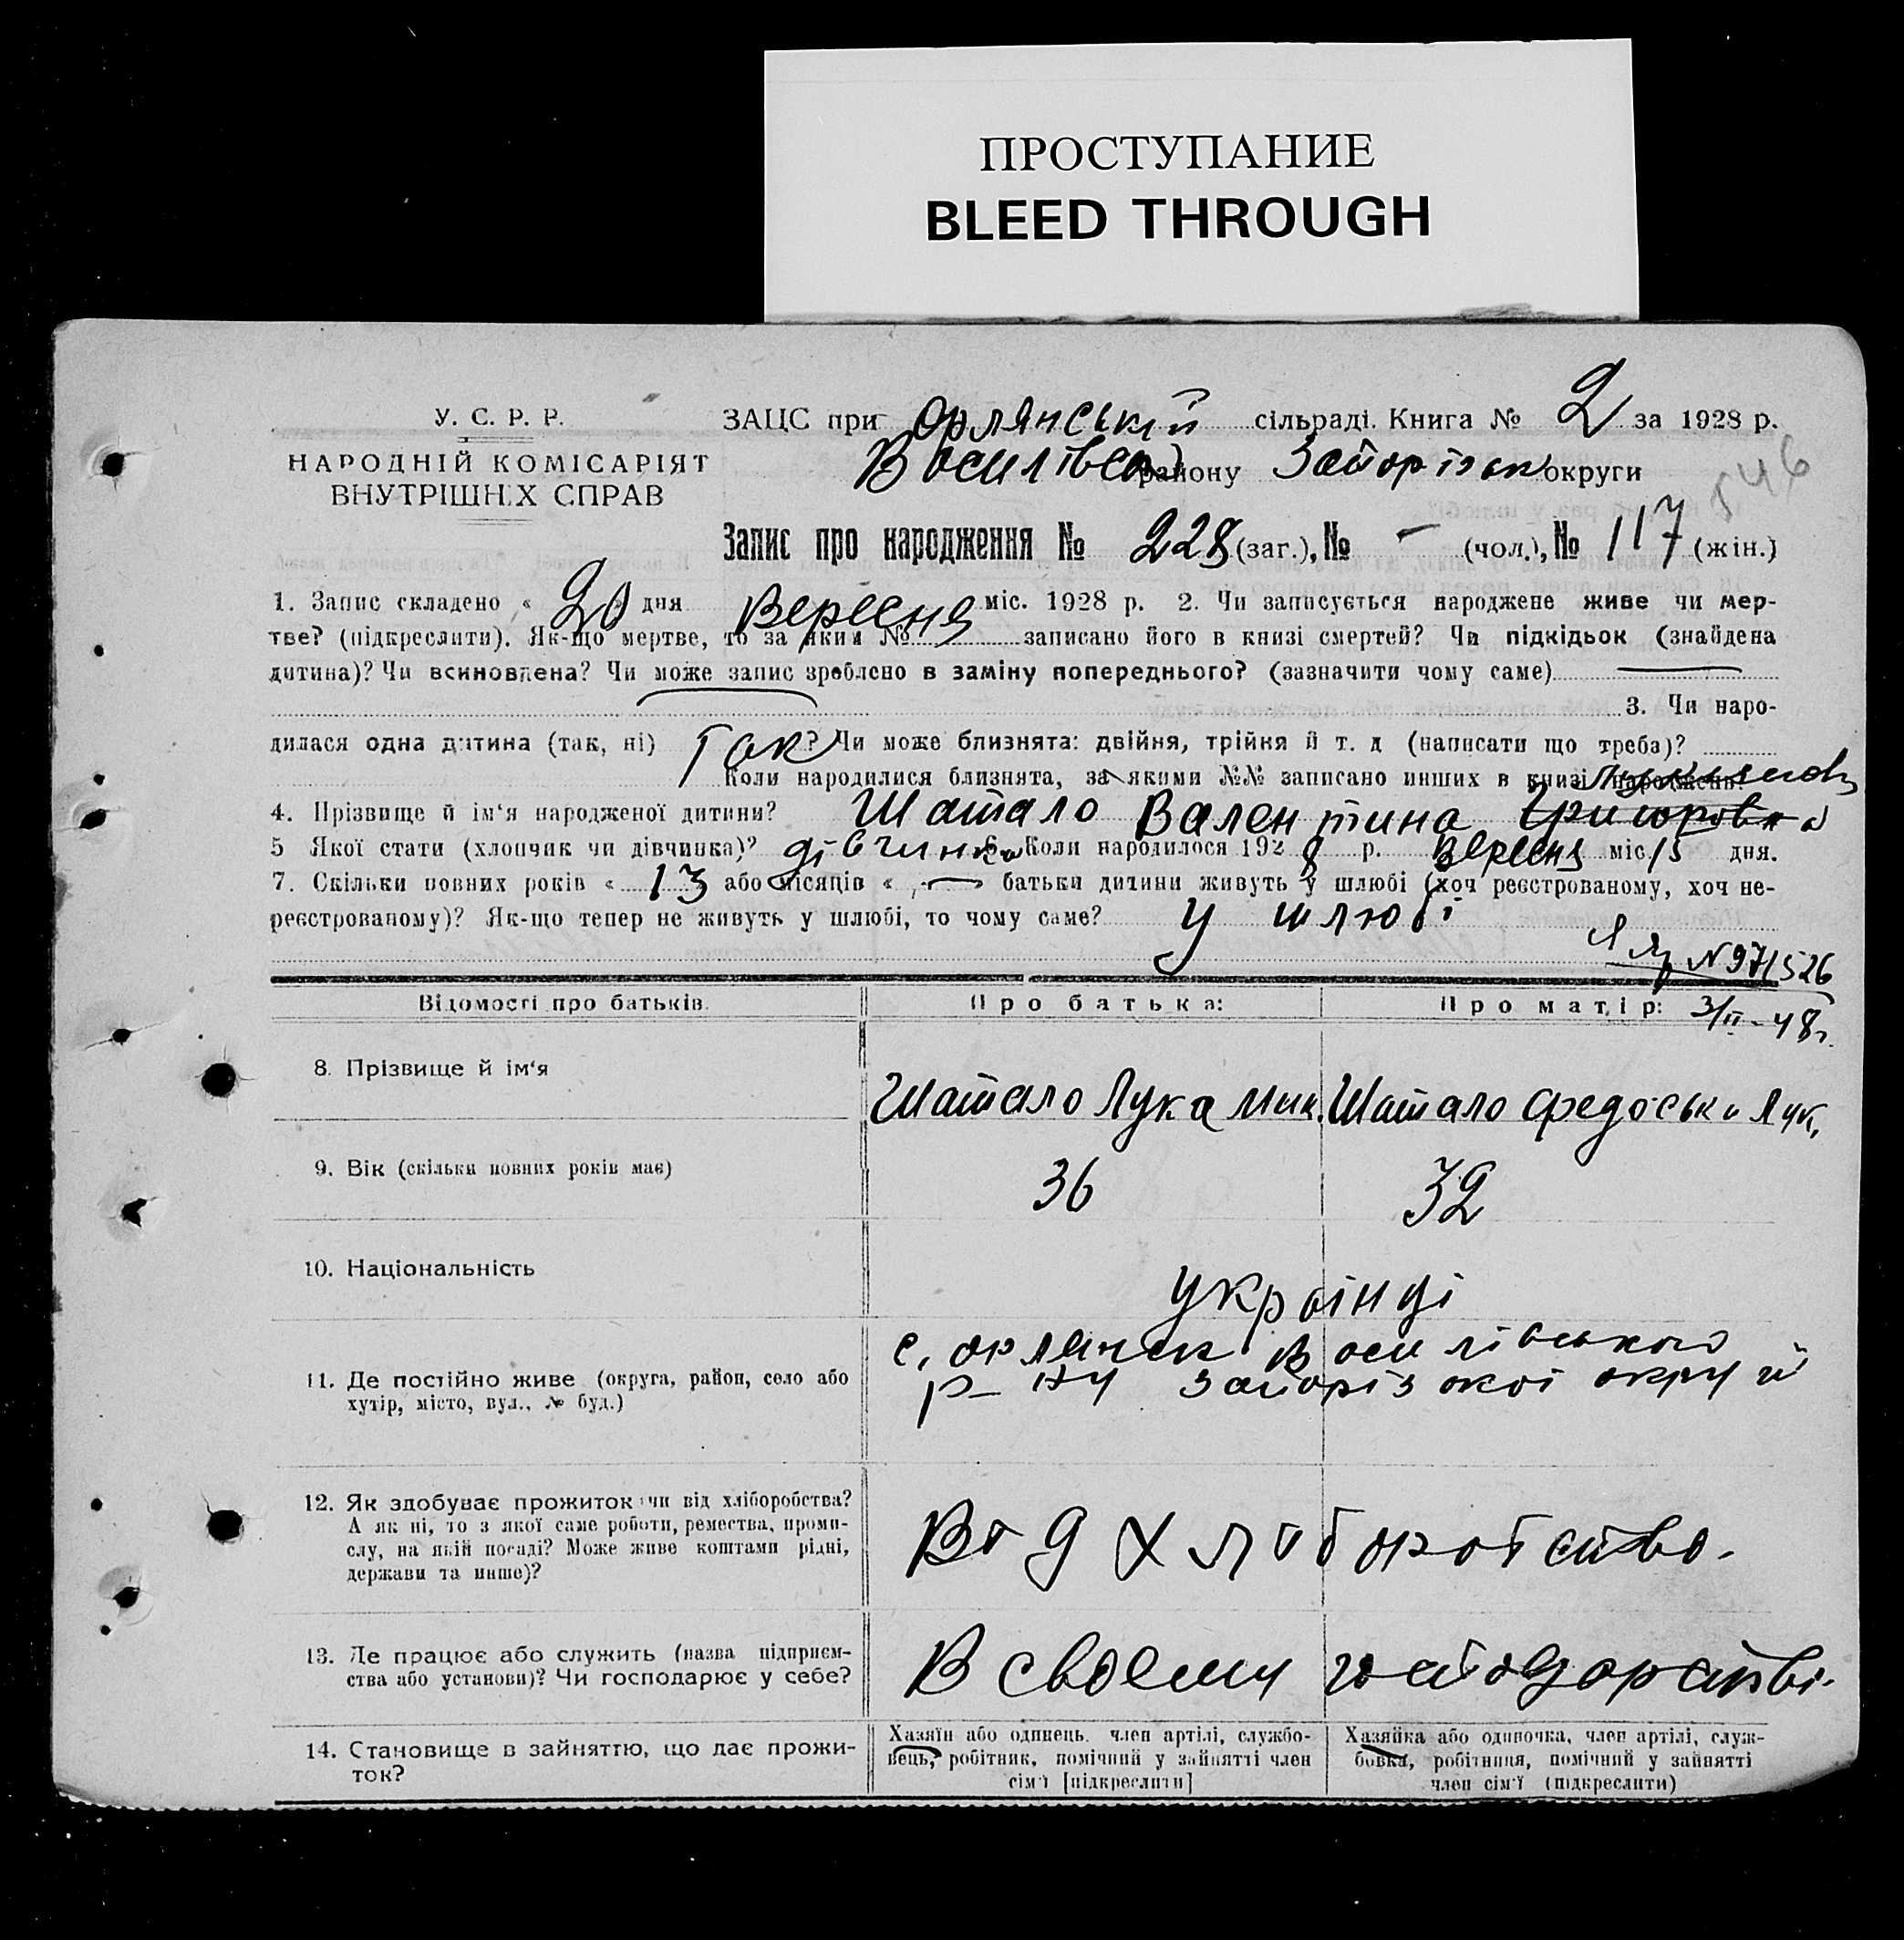 ПРОСТУПАНИЕ
BLEED THROUGH
У. С. Р. Р.
НАРОДНІЙ КОМІСАРІЯТ
ВНУТРІШНІХ СПРАВ
ЗАЦС при Орлянській сільраді. Книга № 2 за 1928 р.
Василівськ району Запорізьк округи
546
Запис про народження № 228 (заг.), № – (чол.), № 117 (жін.)
1. Запис складено « 20 » дня Вересня міс. 1928 р. 2. Чи записується народжене живе чи мер-
тве? (підкреслити). Як-що мертве, то за яким № записано його в книзі смертей? Чи підкідьок (знайдена
дитина)? Чи всиновлена? Чи може запис зроблено в заміну попереднього? (зазначити чому саме)
3. Чи наро-
дилася одна дитина (так, ні) Так ? Чи може близнята: двійня, трійня й т. д (написати що треба)?
Коли народилися близнята, за якими №№ записано инших в книзі народжень?
4. Прізвище й ім‘я народженої дитини? Шатало Валентина Григоровна
5 Якої стати (хлопчик чи дівчинка)? дівчинка 6. Коли народилося 1928 р. Вересня міс. 15 дня.
7. Скільки повних років « 13 або місяців « – батьки дитини живуть у шлюбі (хоч реєстрованому, хоч не-
реєстрованому)? Як-що тепер не живуть у шлюбі, то чому саме? у шлюбі
N 971526
Відомості про батьків. Про батька: Про матір: 3/II-48г.
8. Прізвище й ім‘я Шатало Лука Мик. Шатало Федоська Лук.
9. Вік (скільки повних років має) 36 32
10. Національність українці
11. Де постійно живе (округа, район, село або
хутір, місто, вул., № буд.)
с. Орлянськ Василівського
р-ну Запорізької округи
12. Як здобуває прожиток: чи від хліборобства?
А як ні, то з якої саме роботи, ремества, проми-
слу, на якій посаді? Може живе коштами рідні,
держави та инше)?
Від хліборобства.
13. Де працює або служить (назва підприєм-
ства або установи)? Чи господарює у себе?
В своему господарстві.
14. Становище в зайняттю, що дає прожи-
ток?
Хазяїн або одинець, член артілі, службо-
вець, робітник, помічний у зайнятті член
сім‘ї [підкреслити]
Хазяйка або одиночка, член артілі, служ-
бовка, робітниця, помічний у зайнятті
член сім‘ї (підкреслити)